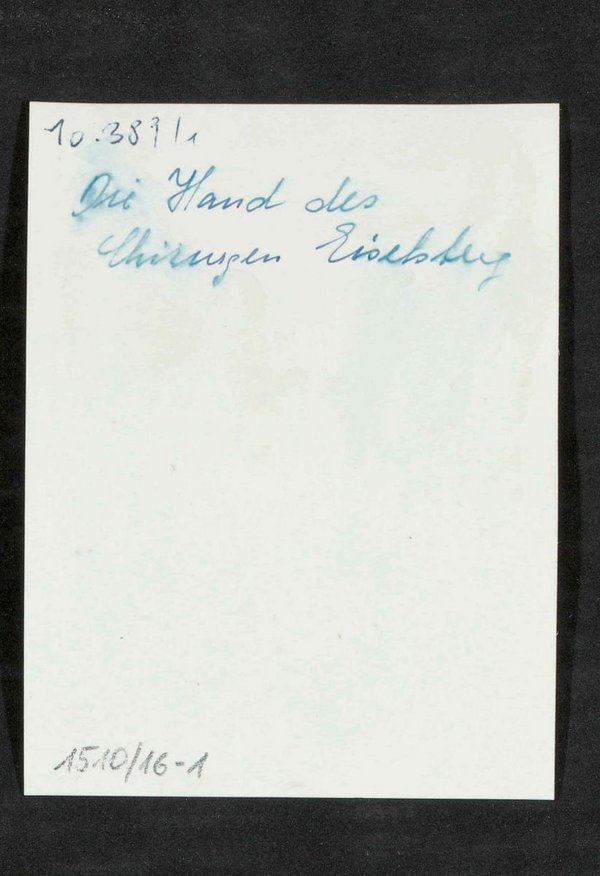 10.389/1
Die Hand des
Chirurgen Eiselsberg
1510/16-1